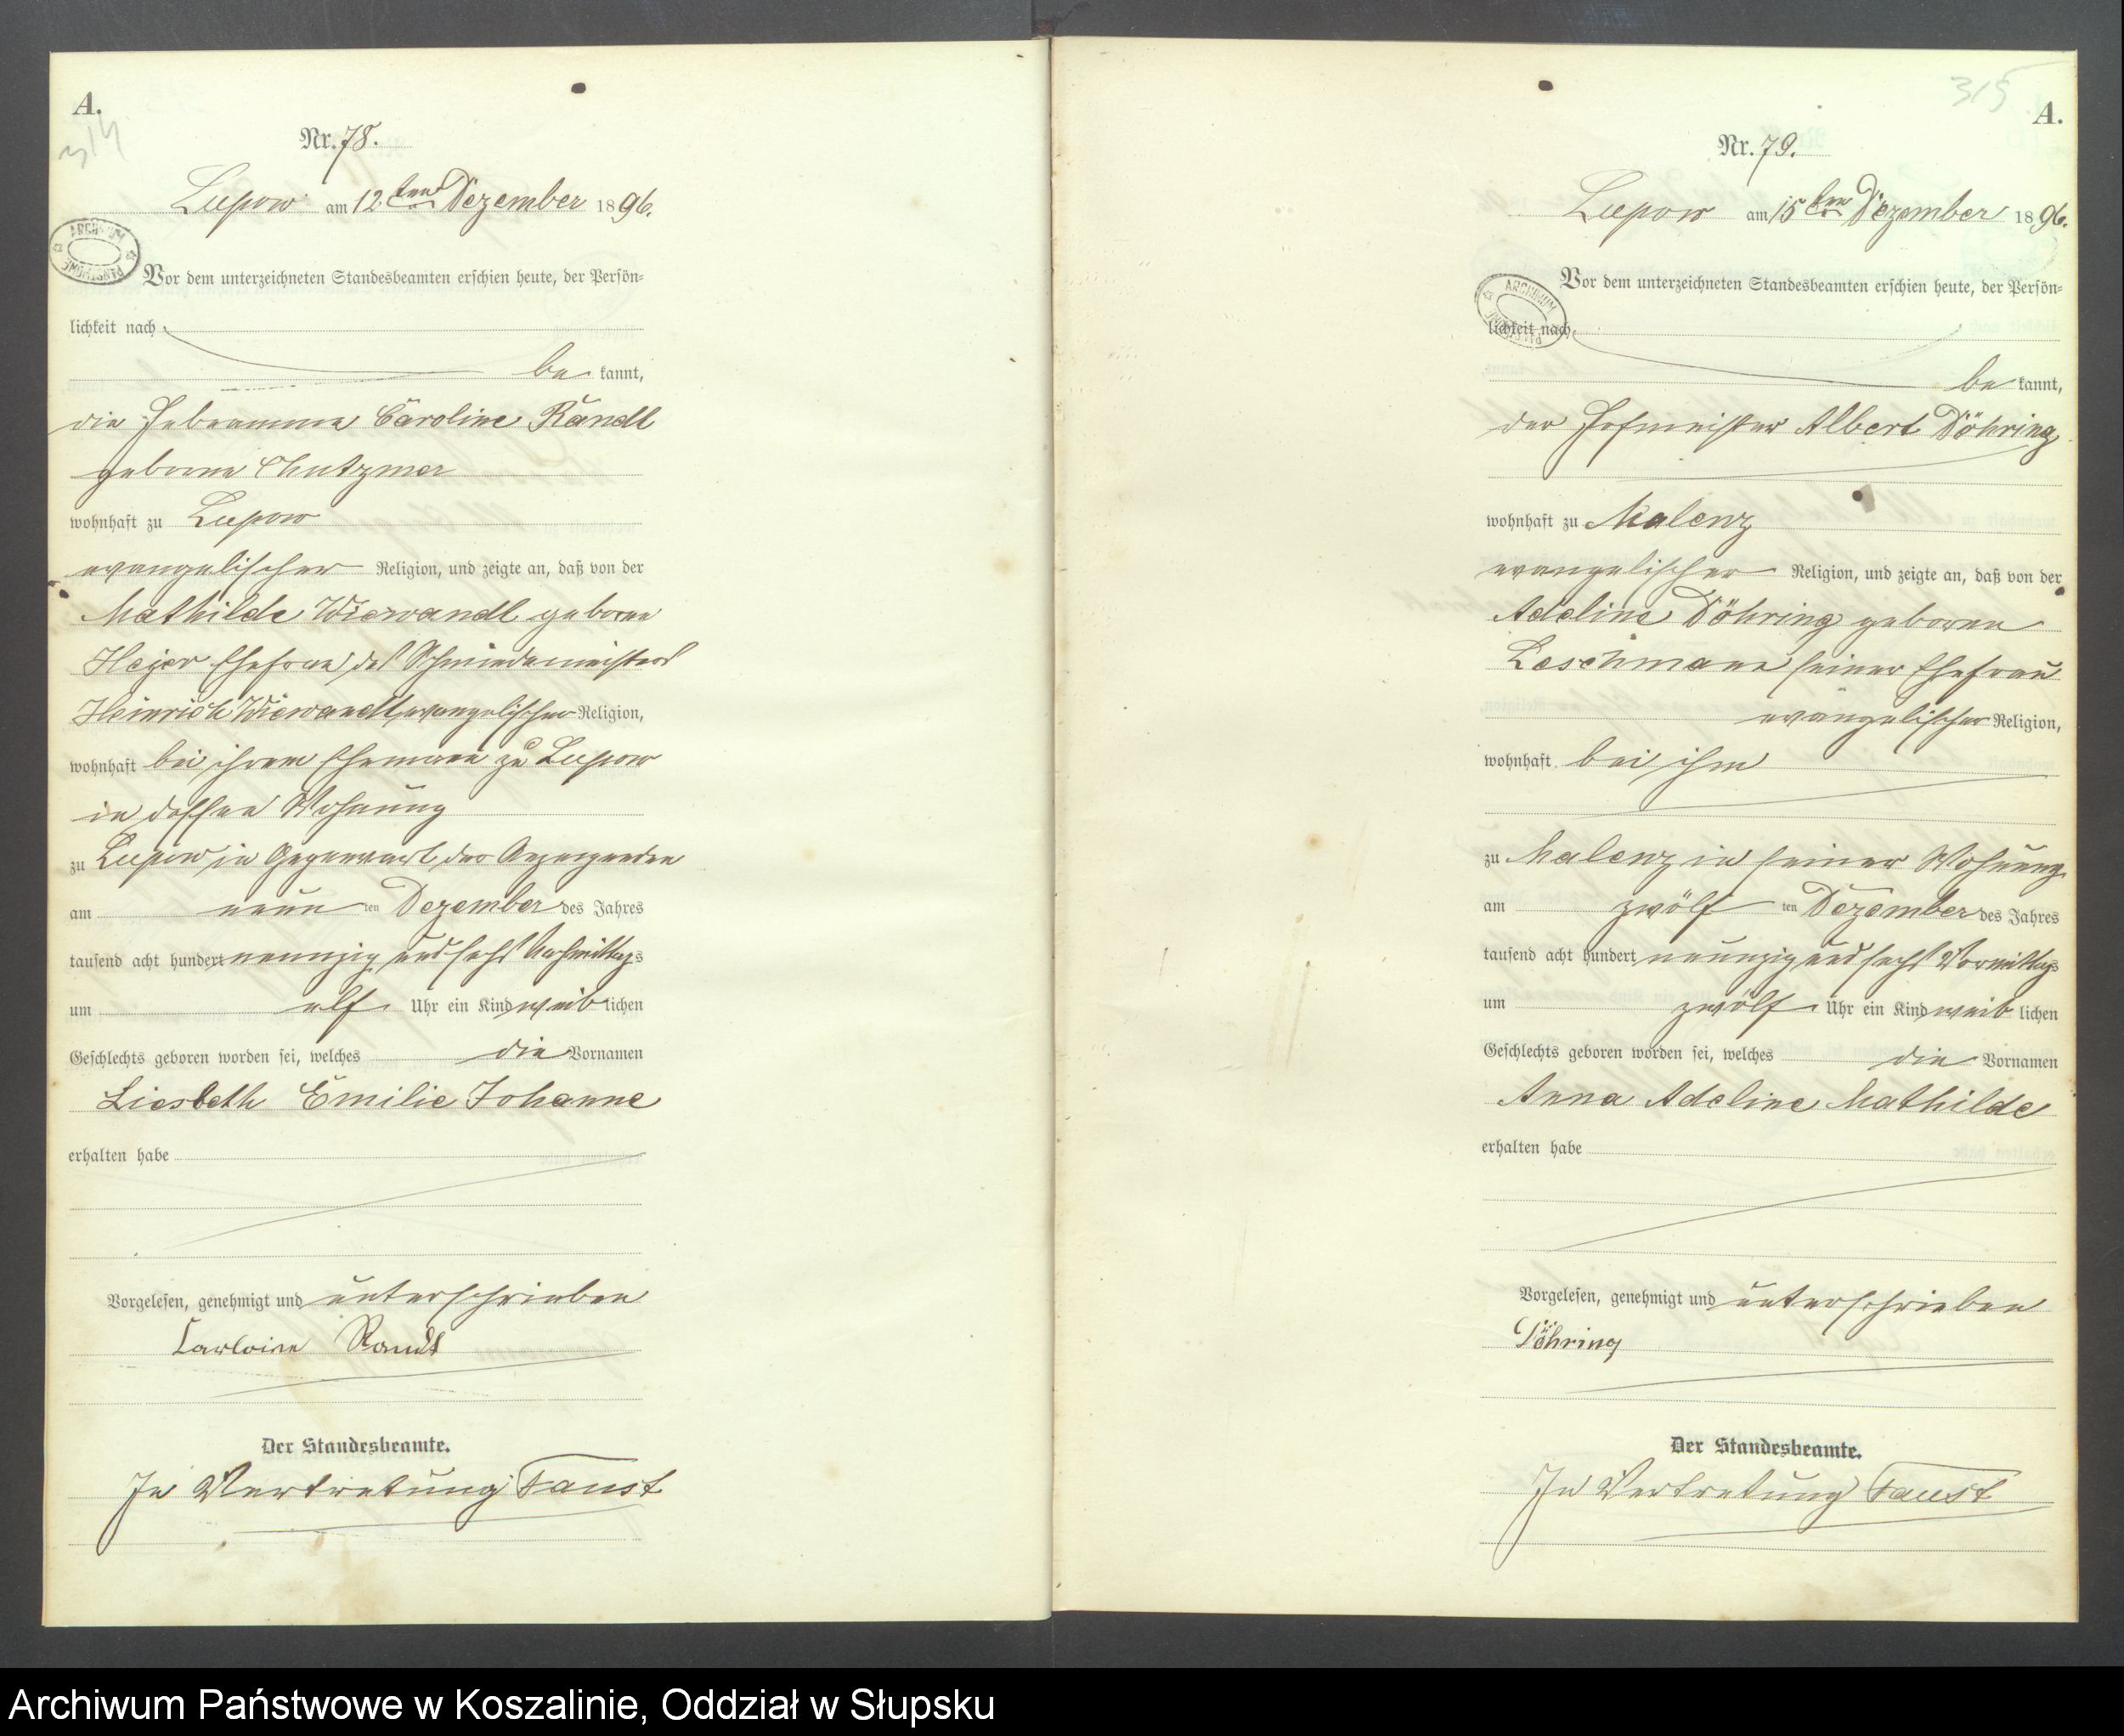 A.
314
Nr. 78.
Lupow am 12ten Dezember 1896.
ARCHIWUM PAŃSTWOWE
Vor dem unterzeichneten Standesbeamten erschien heute, der Persön=
lichkeit nach
be kannt,
die Hebeamme Caroline Randt
geborne Chutzmer
wohnhaft zu Lupow
evangelischer Religion, und zeigte an, daß von der
Mathilde Wiewandt geborne
Hejer Ehefrau des Schmiedemeisters
Heinrich Wiewandt, evangelischer Religion,
wohnhaft bei ihrem Ehemann zu Lupow
in dessen Wohnung
zu Lupow in Gegenwart der Anzeigenden
am neun ten Dezember des Jahres
tausend acht hundert neunzig und sechs Nachmittags
um elf Uhr ein Kind weib lichen
Geschlechts geboren worden sei, welches die Vornamen
Liesbeth Emilie Johanne
erhalten habe
Vorgelesen, genehmigt und unterschrieben
Carloine Randt
Der Standesbeamte.
In Vertretung Faust
315
A.
Nr. 79.
Lupow am 15ten Dezember 1896.
ARCHIWUM PAŃSTWOWE
Vor dem unterzeichneten Standesbeamten erschien heute, der Persön=
lichkeit nach
be kannt,
der Hofmeister Albert Döhring
wohnhaft zu Malenz
evangelischer Religion, und zeigte an, daß von der
Adeline Döhring geboren
Leschmann seiner Ehefrau
evangelischer Religion,
wohnhaft bei ihm
zu Malenz in seiner Wohnung
am zwölf ten Dezember des Jahres
tausend acht hundert neunzig und sechs Vormittags
um zwölf Uhr ein Kind weib lichen
Geschlechts geboren worden sei, welches die Vornamen
Anna Adeline Mathilde
erhalten habe
Vorgelesen, genehmigt und unterschrieben
Döhring
Der Standesbeamte.
In Vertretung Faust
Archiwum Państwowe w Koszalinie, Oddział w Słupsku